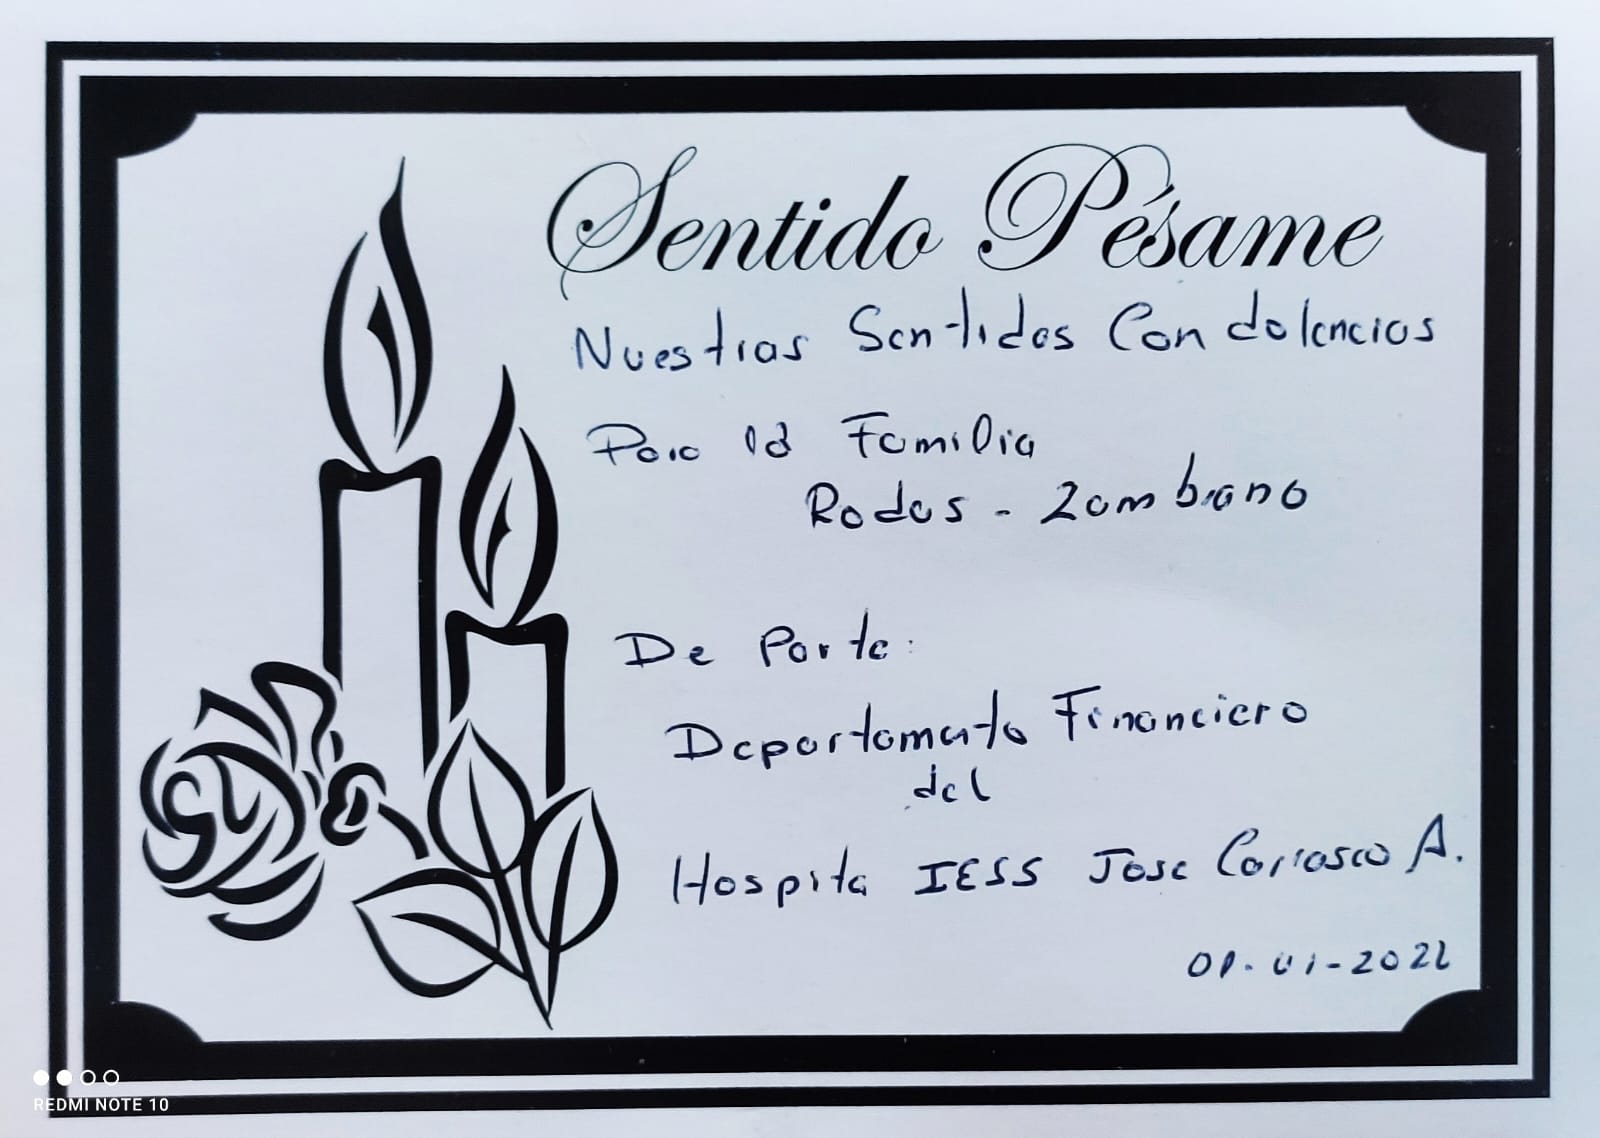 Sentido Pésame
Nuestras Sentidas Condolencias
Para la Familia
Rodas - Zambrano
De Parte:
Departamento Financiero
del
Hospita IESS Jose Carrasco A.
01-01-2022
REDMI NOTE 10